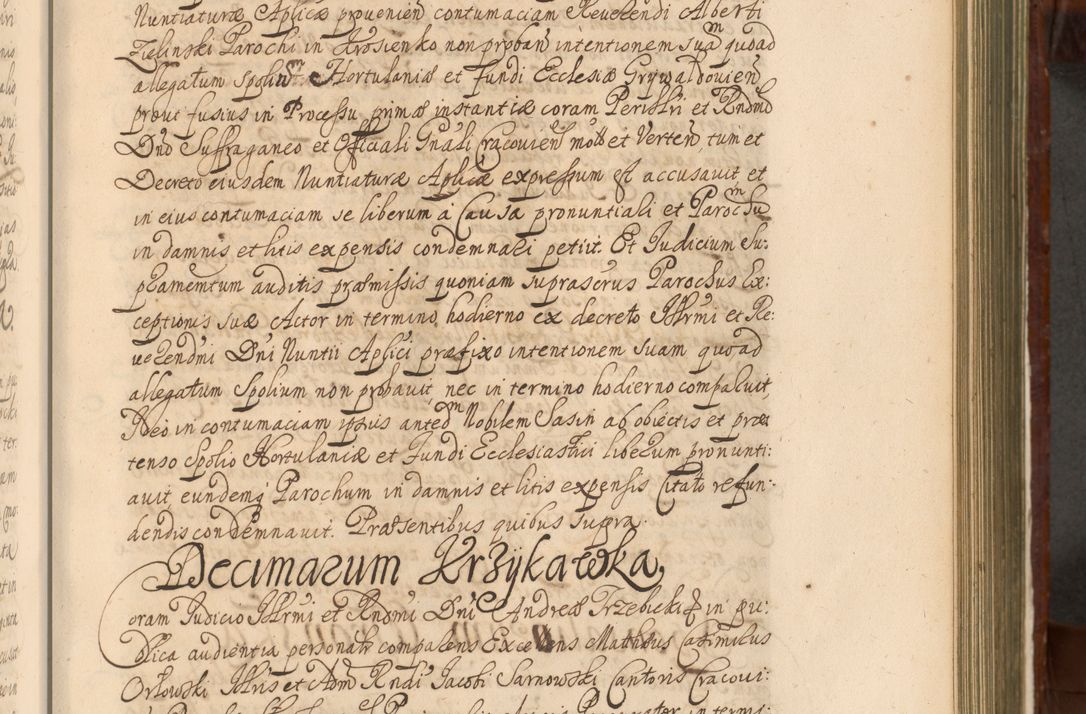 Nuntiaturæ Aplicæ provenien contumaciam Reverendi Alberti
Zielinski Parochi in Krosienko non proban intentionem suam quoad
allegatum Spolium Hortulaniæ et fundi Ecclesiæ Grywaldovien
prout fusius in Processu primæ instantiæ coram Perillri et Rndmo
Dno Suffraganeo et Officiali Gnali Cracovien moto et Verten, tum et
Decreto eiusdem Nuntiaturæ Aplicæ expressum est accusavit et
in eius contumaciam se liberum a Causa pronuntiari et Parochum
in damnis et litis expensis condemnari petiit. Et Judicium Su:
praemcmtum auditis præmissis quoniam suprascrus Parochus Ex:
ceptionis suæ Actor in termino hodierno ex decreto Illrmi et Re:
verendmi Dni Nuntii Aplici præfixo intentionem suam quoad
allegatum Spolium non probavit, nec in termino hodierno comparuit,
Ideo in contumaciam ipsius anted Nobilem Sasin ab obiectis et præ
tenso Spolio Hortulaniæ et Fundi Ecclesiastici liberum pronunti:
avit eundemq Parochum in damnis et litis expensis Citato refun:
dendis condemnavit. Præsentibus quibus supra.
Decimarum Krzykawka,
Coram Judicio Illrmi et Rndmi Dni Andreæ Trzebicki in pu:
blica audientia personalr comparens Excellens Matthæus Casimirus
Orłowski Illris et Adm Rndi Jacobi Sarnowski Cantoris Cracovi: